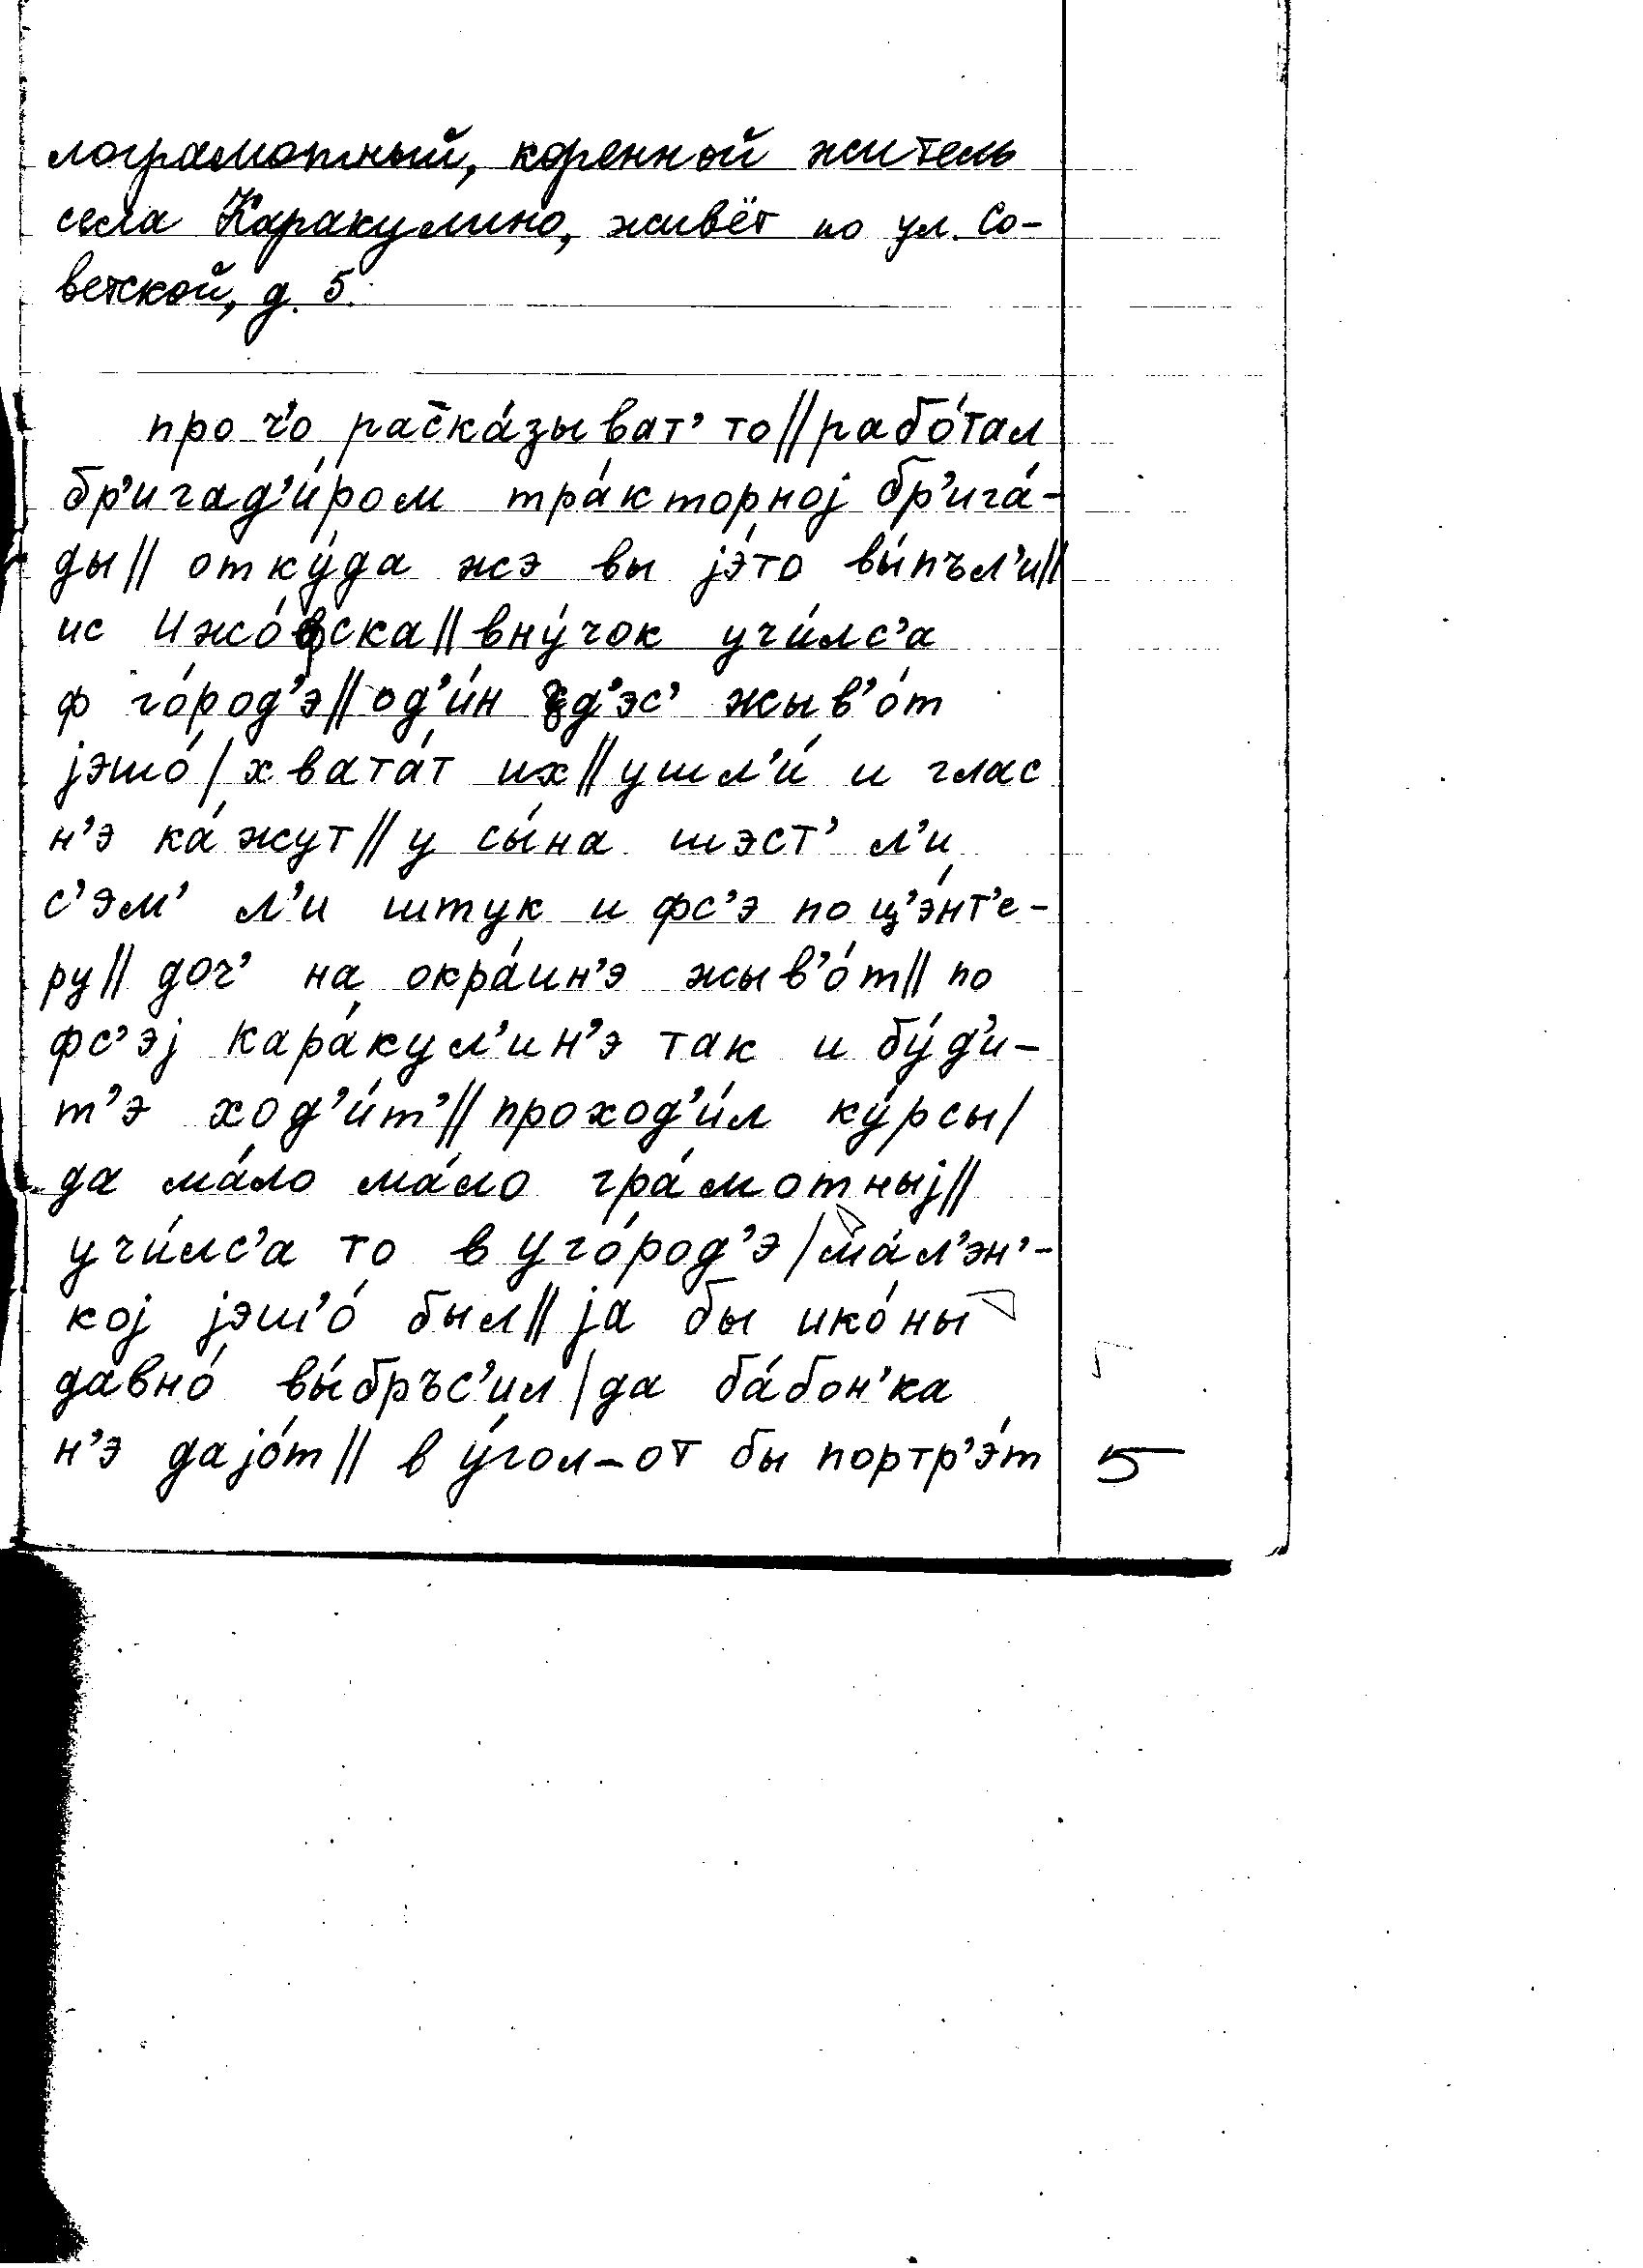 лограмотный, коренной житель
села Каракулино, живёт по ул. Со-
ветской, д. 5.
про ч'о раска́зыват' то // рабо́тал
бр'игад'и́ром тра́кторноj бр'ига́-
ды // отку́да жэ вы jэ́то вы́пъл'и //
ис Ижо́фска // вну́чок учи́лс'а
ф го́род'э // од'и́н зд'эс' жыв'о́т
jэшо́ / хвата́т их // ушл'и́ и глас
н'э ка́жут // у сы́на шэст' л'и
с'эм' л'и штук и фс'э по ц'э́нт'е-
ру // доч' на окра́ин'э жыв'о́т // по
фс'эj кара́кул'ин'э так и бу́д'и-
т'э ход'и́т' // проход'и́л ку́рсы /
да ма́ло ма́ло гра́мотныj //
учи́лс'а то в уго́род'э / ма́л'эн'-
коj jэш'о́ был // jа бы ико́ны
давно́ вы́бръс'ил / да ба́бон'ка
н'э даjо́т // в у́гол-от бы портр'э́т
5